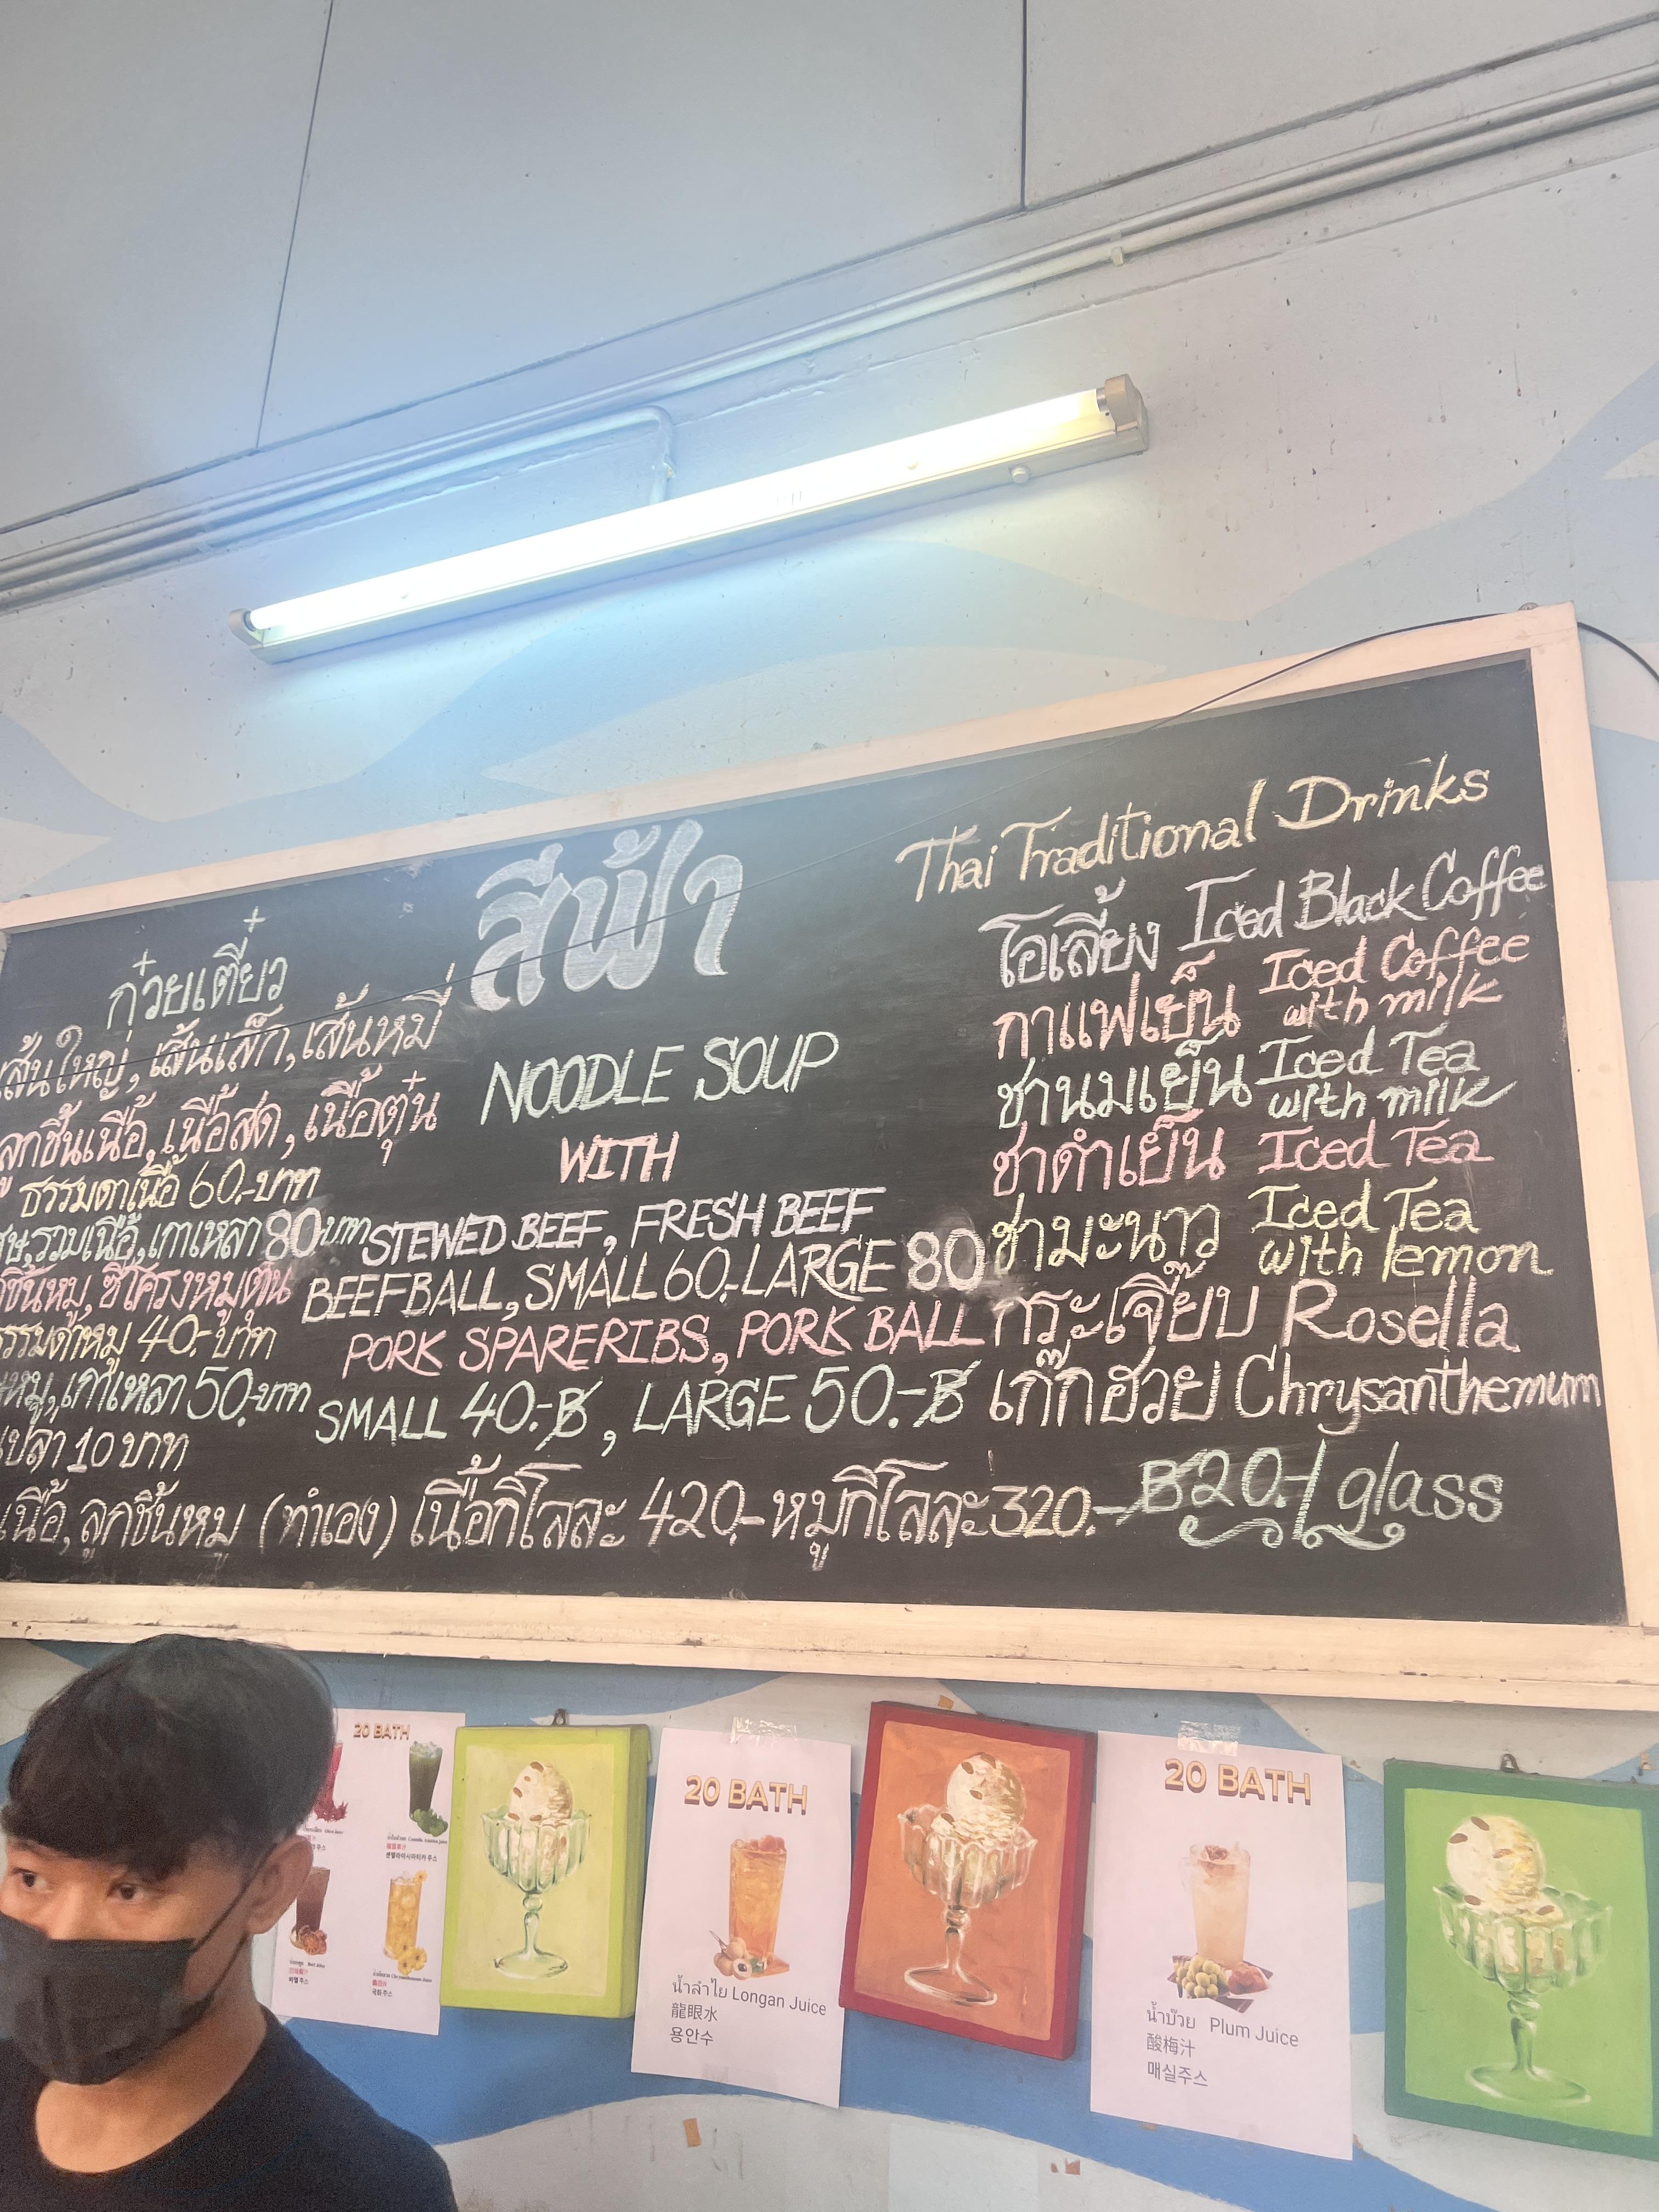 สีฟ้า
ก๋วยเตี๋ยว
เส้นใหญ่, เส้นเล็ก, เส้นหมี่
ลูกชิ้นเนื้อ, เนื้อสด, เนื้อตุ๋น
ธรรมดาเนื้อ 60.-บาท
รวมเนื้อ, เกาเหลา 80 บาท
ซี่โครงหมูตุ๋น
40.-บาท
เกาเหลา 50.-บาท
10 บาท
NOODLE SOUP
WITH
STEWED BEEF, FRESH BEEF
BEEFBALL, SMALL 60.-LARGE 80
PORK SPARERIBS, PORK BALL
SMALL 40.-฿, LARGE 50.-฿
เนื้อ, ลูกชิ้นหมู (ทำเอง) เนื้อกิโลละ 420.-หมูกิโลละ 320.-
Thai Traditional Drinks
โอเลี้ยง Iced Black Coffee
กาแฟเย็น Iced Coffee
with milk
ชานมเย็น Iced Tea
with milk
ชาดำเย็น Iced Tea
ชามะนาว Iced Tea
with lemon
กระเจี๊ยบ Rosella
เก๊กฮวย Chrysanthemum
฿20.-/glass
20 BATH
20 BATH
น้ำลำไย Longan Juice
龍眼水
용안수
20 BATH
น้ำบ๊วย Plum Juice
酸梅汁
매실주스